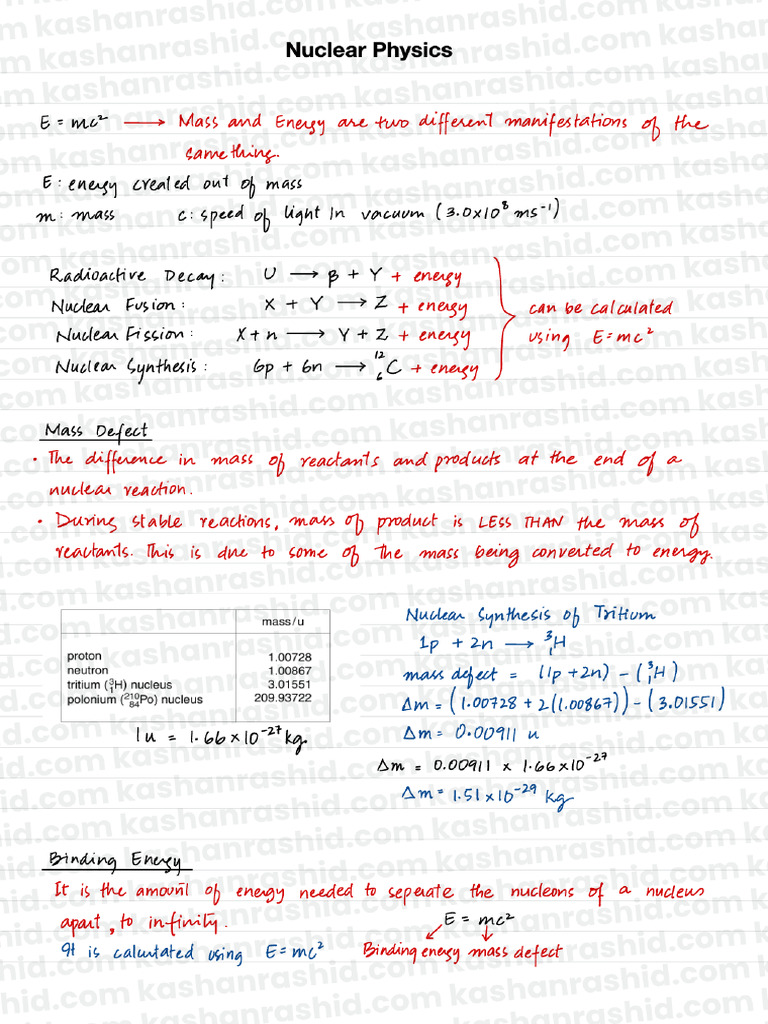 Nuclear Physics
E = mc² ⟶ Mass and Energy are two different manifestations of the
same thing.
E: energy created out of mass
m: mass c: speed of light in vacuum (3.0×10⁸ ms⁻¹)
Radioactive Decay: U ⟶ β + Y + energy
Nuclear Fusion: X + Y ⟶ Z + energy can be calculated
Nuclear Fission: X+n ⟶ Y+Z + energy using E=mc²
Nuclear Synthesis: 6p + 6n ⟶ ¹²₆C + energy
Mass Defect
• The difference in mass of reactants and products at the end of a
nuclear reaction.
• During stable reactions, mass of product is LESS THAN the mass of
reactants. This is due to some of the mass being converted to energy.
mass/u
proton 1.00728
neutron 1.00867
tritium (³₁H) nucleus 3.01551
polonium (²¹⁰₈₄Po) nucleus 209.93722
1u = 1.66×10⁻²⁷kg.
Nuclear Synthesis of Tritium
1p + 2n ⟶ ³₁H
mass defect = (1p+2n) – (³₁H)
Δm = (1.00728 + 2(1.00867)) – (3.01551)
Δm = 0.00911 u
Δm = 0.00911 × 1.66×10⁻²⁷
Δm = 1.51×10⁻²⁹ kg
Binding Energy
It is the amount of energy needed to seperate the nucleons of a nucleus
apart, to infinity. E = mc²
It is calculated using E=mc² Binding energy mass defect
kashanrashid.com